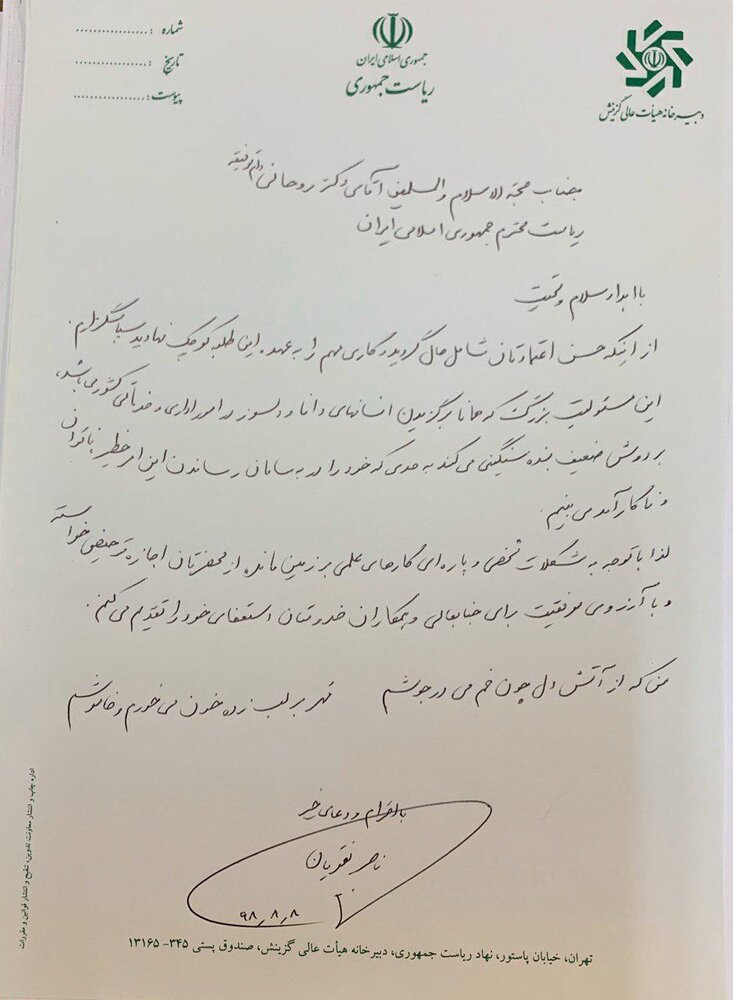 شماره : ..................
تاریخ : ..................
پیوست : ..................
جمهوری اسلامی ایران
ریاست جمهوری
دبیرخانه هیأت عالی گزینش
جناب حجة الاسلام والمسلمین آقای دکتر روحانی دام توفیقه
ریاست محترم جمهوری اسلامی ایران
با اهداء سلام و تحیت
از اینکه حسن اعتمادتان شامل حال گردید و کاری مهم را به عهده این طلبه کوچک نهادید سپاسگزارم.
این مسئولیت بزرگ که همانا برگزیدن انسانهای دانا و دلسوز در امور اداری و خدماتی کشور می باشد،
بر دوش ضعیف بنده سنگینی می کند به حدی که خود را در به سامان رساندن این امر خطیر ناتوان
و ناکارآمد می بینم.
لذا با توجه به مشکلات شخصی و پاره ای کارهای علمی بر زمین مانده از محضرتان اجازه ترخیص خواسته
و با آرزوی موفقیت برای جنابعالی و همکاران خدومتان استعفای خود را تقدیم می کنم.
من که از آتش دل چون خم می در جوشم مهر بر لب زده خون می خورم و خاموشم
با احترام و دعای خیر
ناصر نقویان
۹۸٫۸٫۸
تهران، خیابان پاستور، نهاد ریاست جمهوری، دبیرخانه هیأت عالی گزینش، صندوق پستی ۳۴۵- ۱۳۱۶۵
اداره چاپ و انتشار معاونت تدوین، تنقیح و انتشار قوانین و مقررات